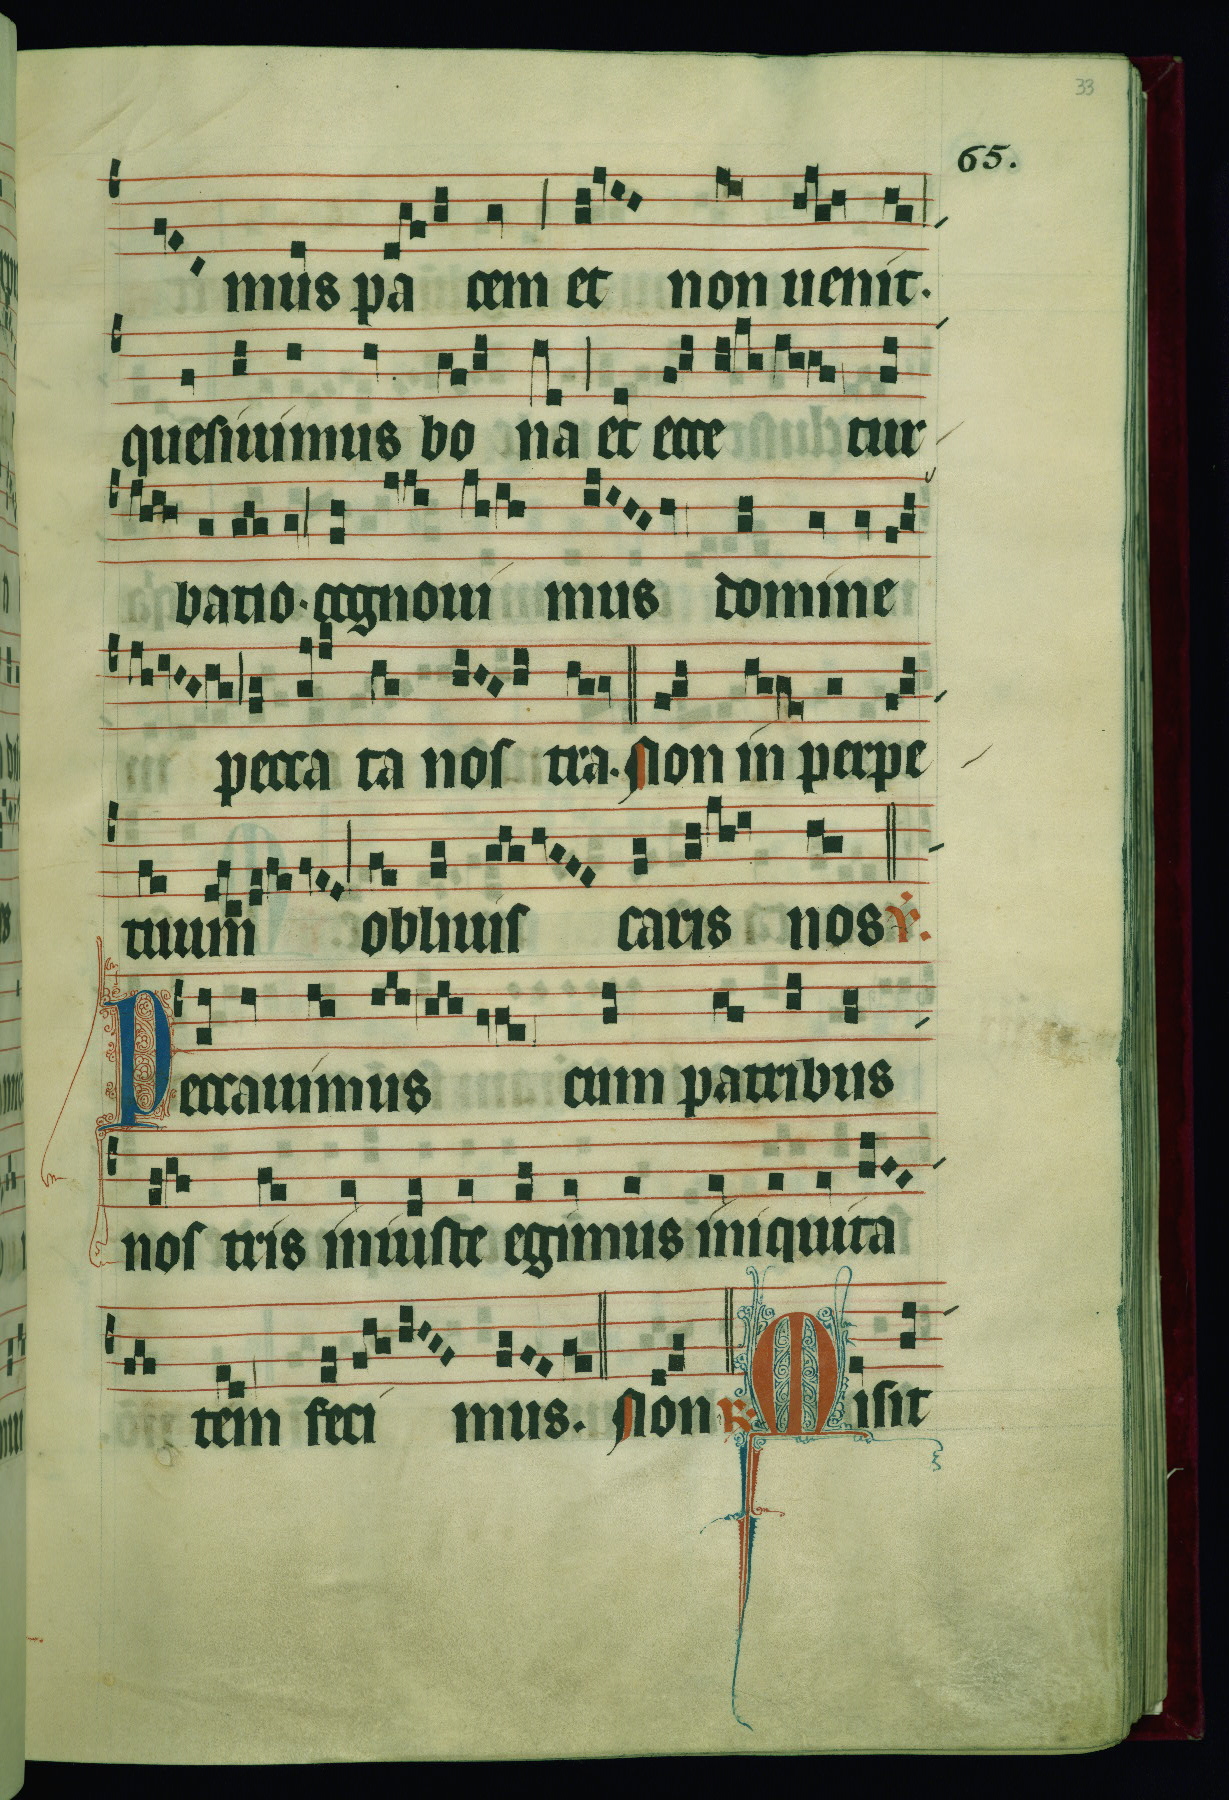 33
65.
mus pa cem et non uenit.
quesiuimus bo na et ecce tur
batio. cognoui mus domine
pecca ta nos tra. Non in perpe
tuum obliuis caris nos ℣.
Peccauimus cum patribus
nos tris iniuste egimus iniquita
tem feci mus. Non ℟. Misit